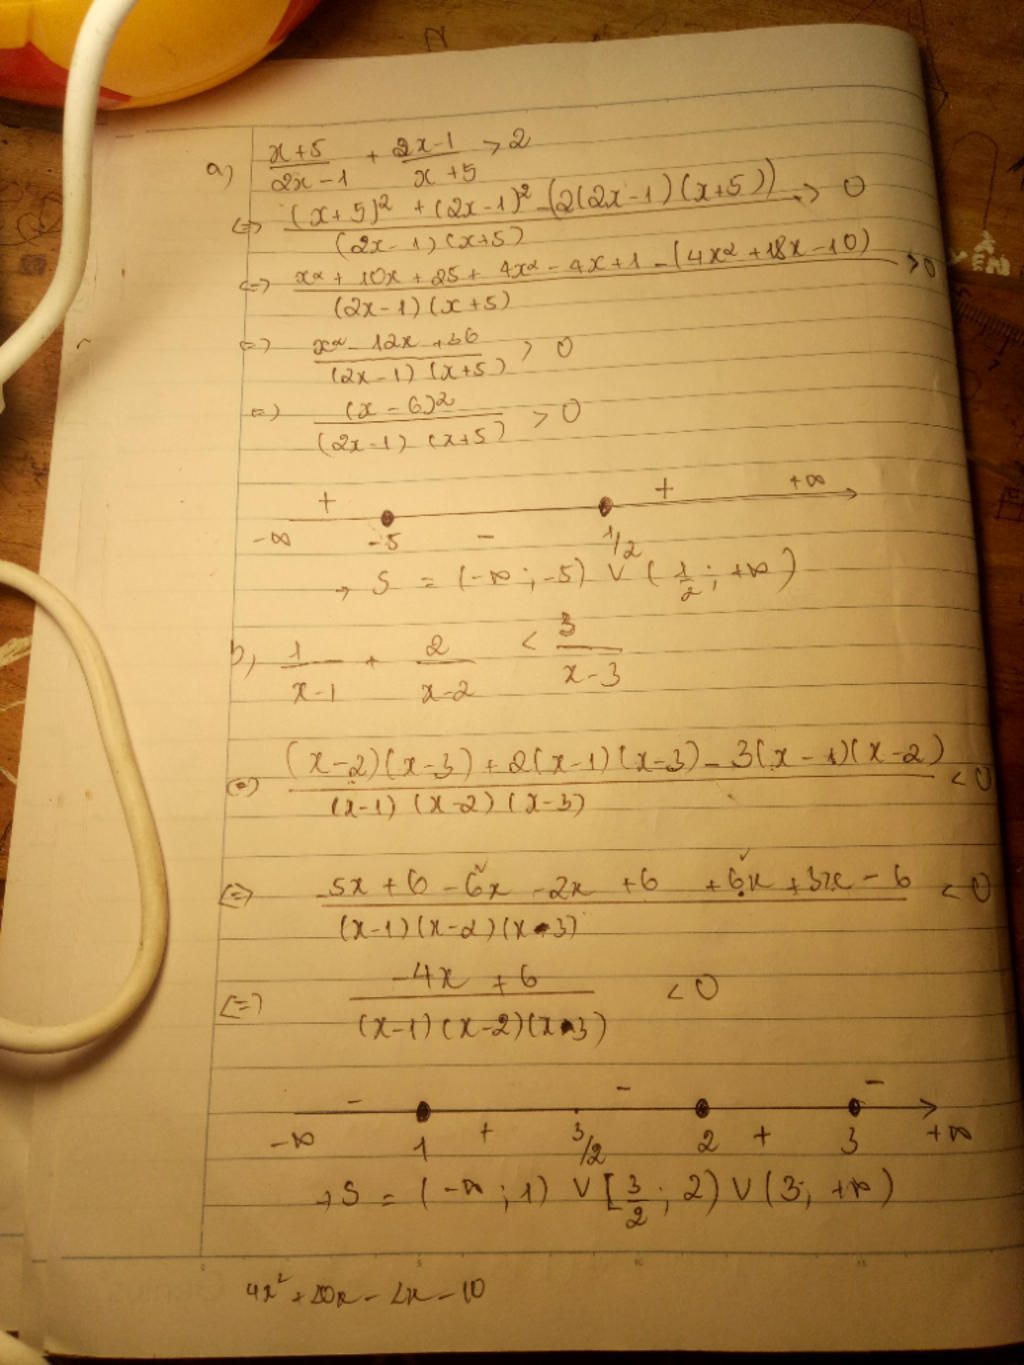 a) (x+5)/(2x-1) + (2x-1)/(x+5) > 2
<=> ((x+5)² + (2x-1)² - (2(2x-1)(x+5)))/((2x-1)(x+5)) > 0
<=> (x² + 10x + 25 + 4x² - 4x + 1 - (4x² + 18x - 10))/((2x-1)(x+5)) > 0
<=> (x² - 12x + 36)/((2x-1)(x+5)) > 0
<=> (x-6)²/((2x-1)(x+5)) > 0
+ + +∞
-∞ -5 - 1/2
→ S = (-∞; -5) ∨ (1/2; +∞)
b) 1/(x-1) + 2/(x-2) < 3/(x-3)
<=> ((x-2)(x-3) + 2(x-1)(x-3) - 3(x-1)(x-2))/((x-1)(x-2)(x-3)) < 0
<=> (-5x + 6 - 6x - 2x + 6 + 6x + 3x - 6)/((x-1)(x-2)(x-3)) < 0
<=> (-4x + 6)/((x-1)(x-2)(x-3)) < 0
- - -
-∞ 1 + 3/2 2 + 3 +∞
→ S = (-∞; 1) ∨ [3/2; 2) ∨ (3; +∞)
4x² + 20x - 2x - 10